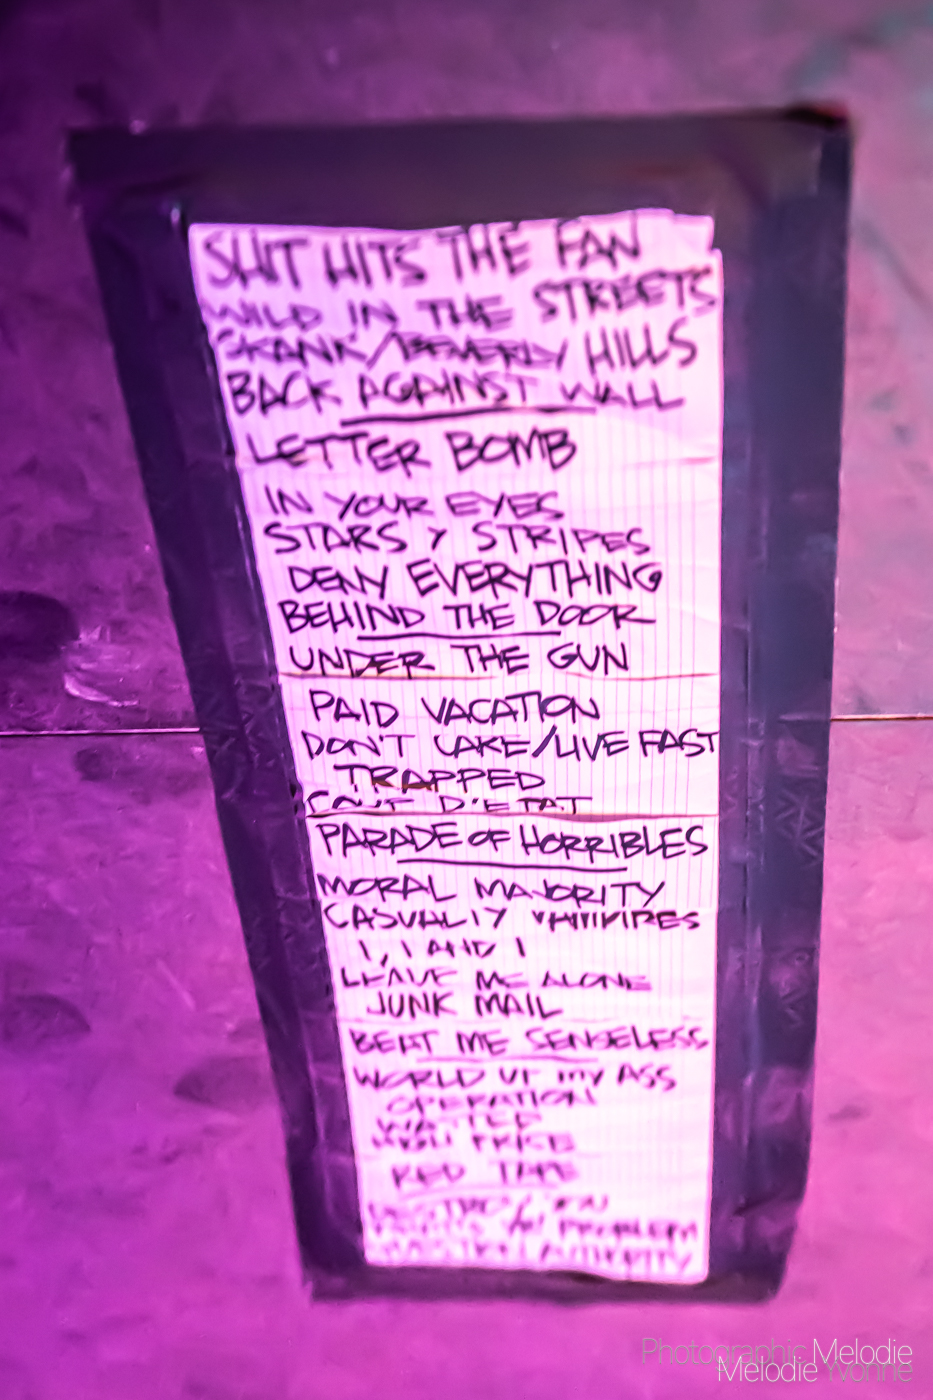 SHIT HITS THE FAN
WILD IN THE STREETS
SKANK/BEVERLY HILLS
BACK AGAINST WALL
LETTER BOMB
IN YOUR EYES
STARS Y STRIPES
DENY EVERYTHING
BEHIND THE DOOR
UNDER THE GUN
PAID VACATION
DON'T CARE/LIVE FAST
TRAPPED
COUP D'ETAT
PARADE OF HORRIBLES
MORAL MAJORITY
CASUALTY VAMPIRES
I, I AND I
LEAVE ME ALONE
JUNK MAIL
BEAT ME SENSELESS
WORLD UP MY ASS
OPERATION
WASTED
HIGH PRICE
RED TAPE
PROBLEM
AUTHORITY
Photographic Melodie
Melodie Yvonne